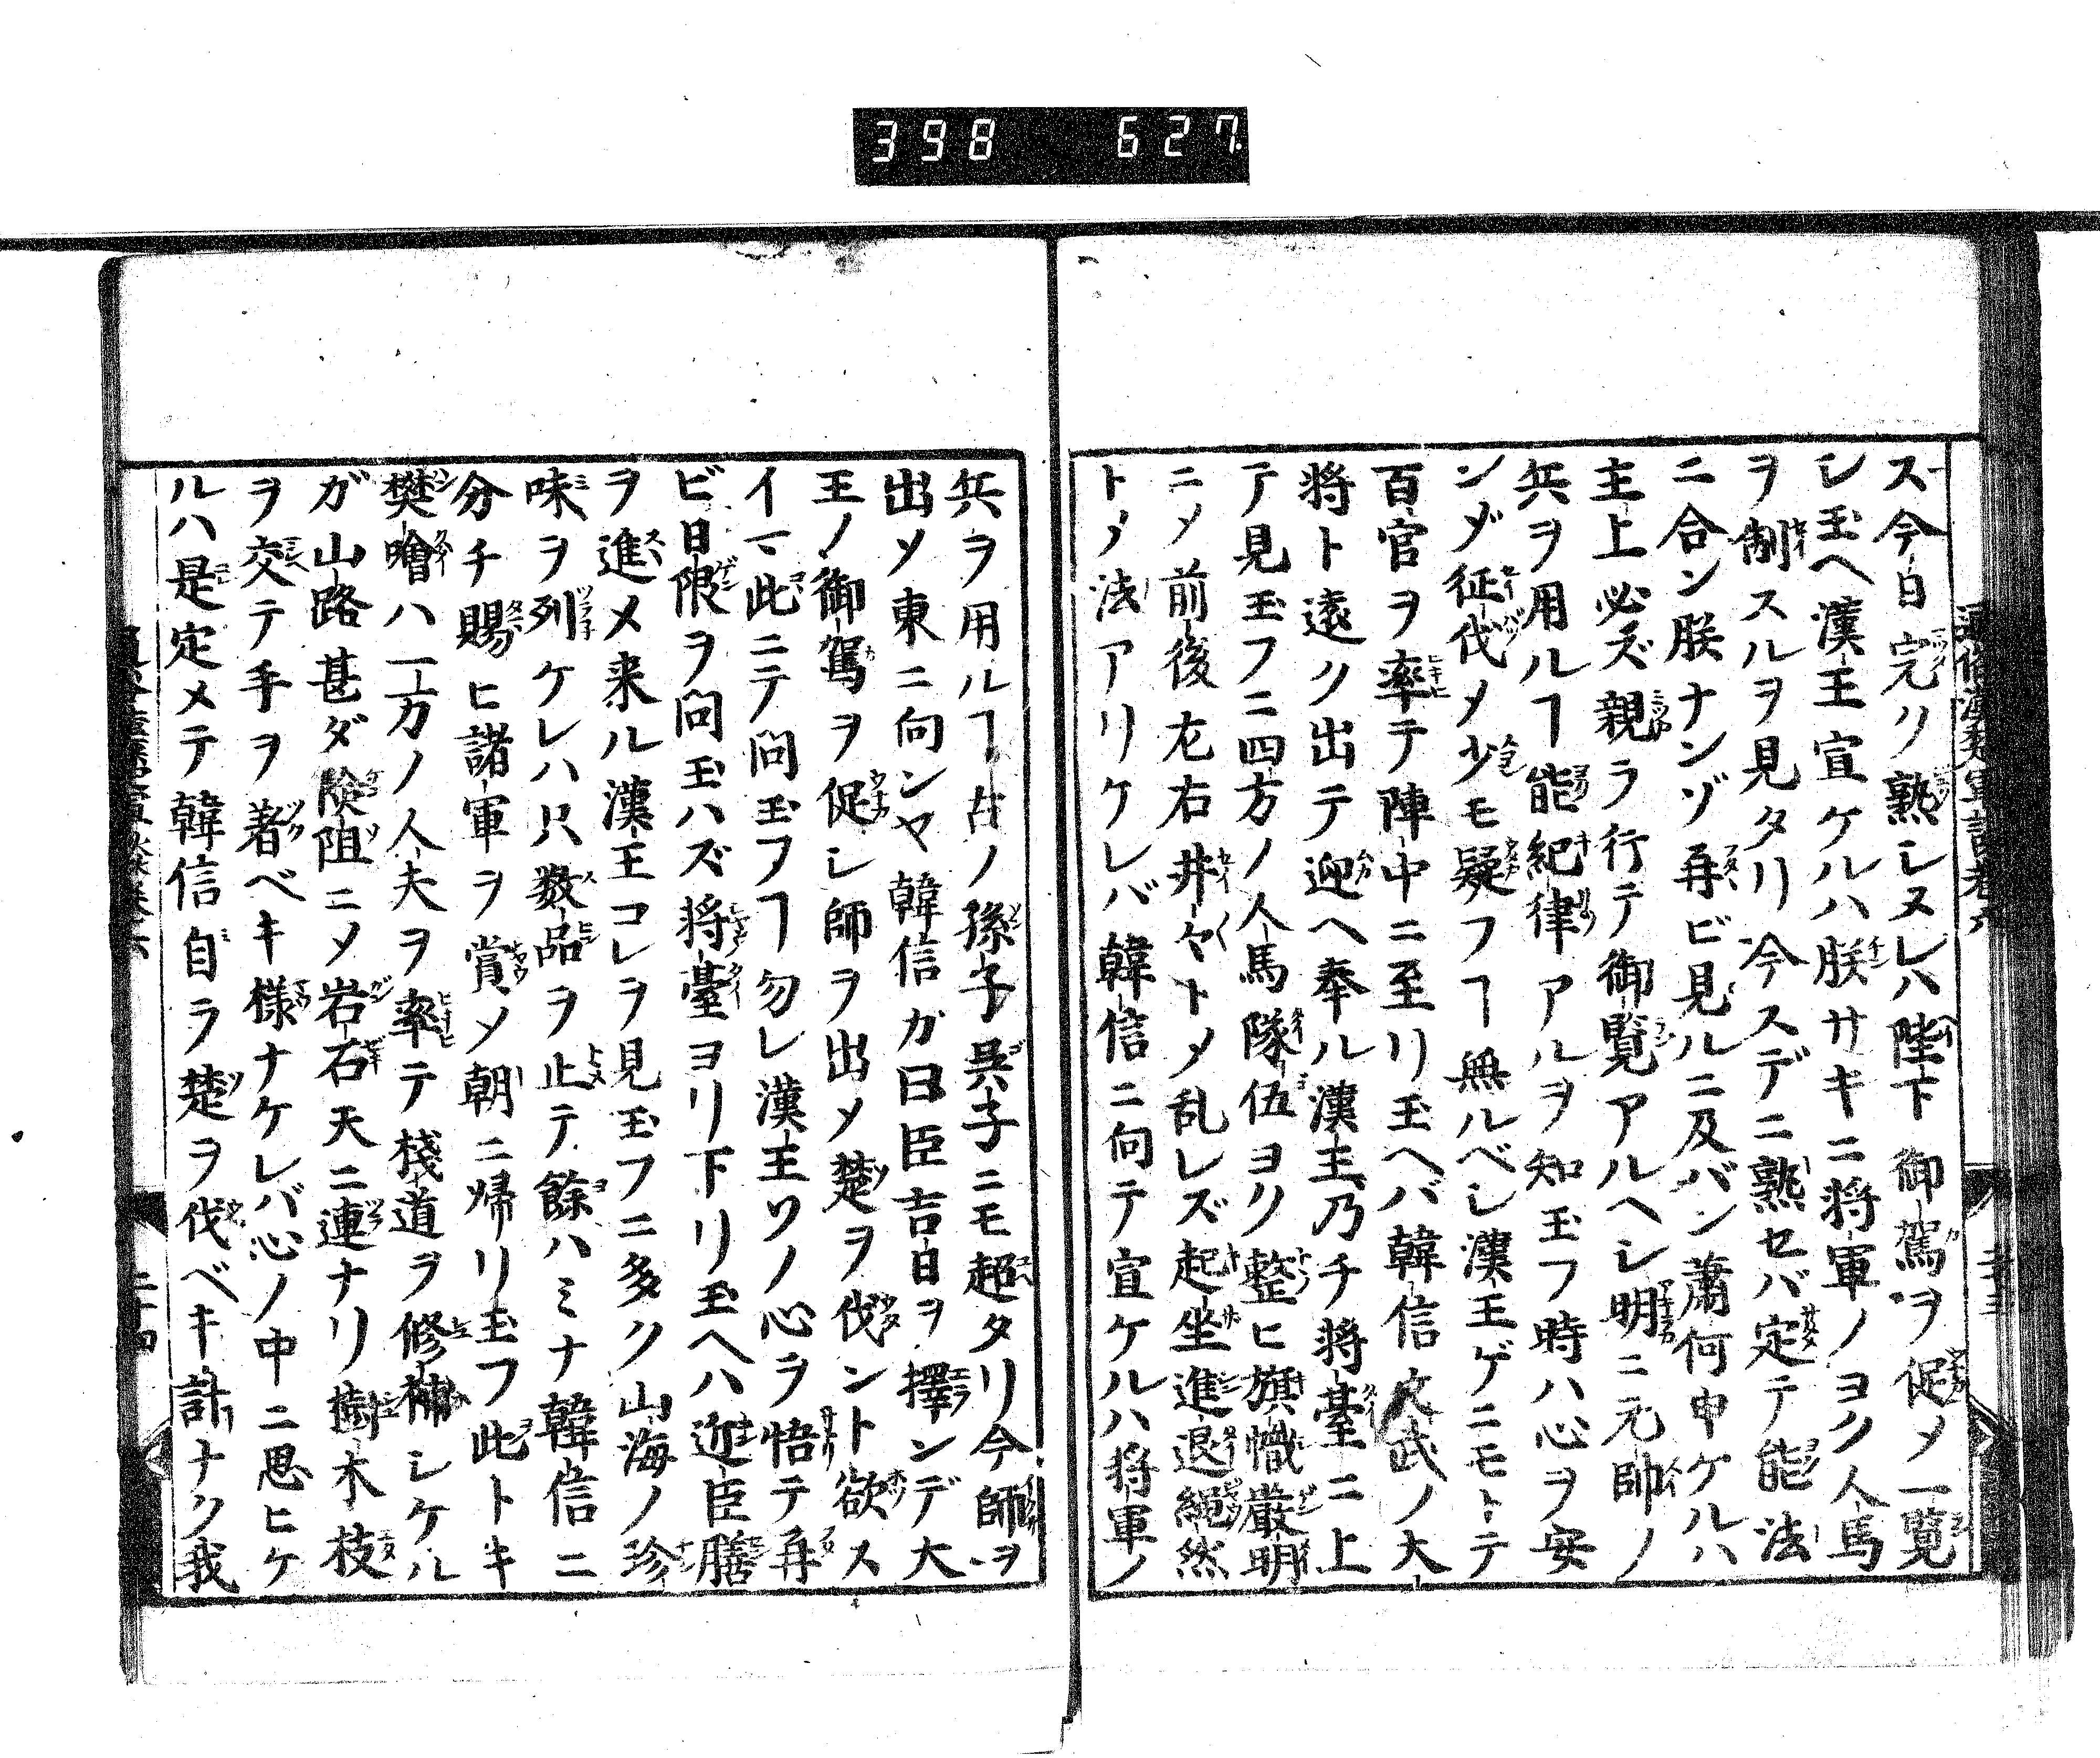 398 627
ス今日完ク熟シヌレハ陛下御駕ヲ促メ一覧
シ玉ヘ漢王宣ケルハ朕サキニ将軍ノヨク人馬
ヲ制スルヲ見タリ今スデニ熟セバ定テ能法
ニ合ン朕ナンゾ再ビ見ルニ及バン蕭何申ケルハ
主上必ズ親ラ行テ御覧アルヘシ明ニ元帥ノ
兵ヲ用ルヿ能紀律アルヲ知玉フ時ハ心ヲ安
ンゾ征伐メ少モ疑フヿ無ルベシ漢王ゲニモトテ
百官ヲ率テ陣中ニ至リ玉ヘバ韓信文武ノ大
将ト遠ク出テ迎ヘ奉ル漢王乃チ将臺ニ上
テ見玉フニ四方ノ人馬隊伍ヨク整ヒ旗幟厳明
ニメ前後左右井々トメ乱レズ起坐進退繩然
トメ法アリケレバ韓信ニ向テ宣ケルハ将軍ノ
兵ヲ用ルヿ古ノ孫子呉子ニモ超タリ今師ヲ
出メ東ニ向ンヤ韓信カ曰臣吉日ヲ擇ンデ大
王ノ御駕ヲ促シ師ヲ出メ楚ヲ伐ント欲ス
イマ此ニテ問玉フヿ勿レ漢王ソノ心ヲ悟テ再
ビ日限ヲ問玉ハズ将臺ヨリ下リ玉ヘハ近臣膳
ヲ進メ来ル漢王コレヲ見玉フニ多ク山海ノ珍
味ヲ列ケレハ只数品ヲ止テ餘ハミナ韓信ニ
分チ賜ヒ諸軍ヲ賞メ朝ニ帰リ玉フ此トキ
樊噲ハ一万ノ人夫ヲ率テ棧道ヲ修補シケル
ガ山路甚ダ険阻ニメ岩石天ニ連ナリ樹木枝
ヲ交テ手ヲ著ベキ様ナケレバ心ノ中ニ思ヒケ
ルハ是定メテ韓信自ラ楚ヲ伐ベキ計ナク我
二十四